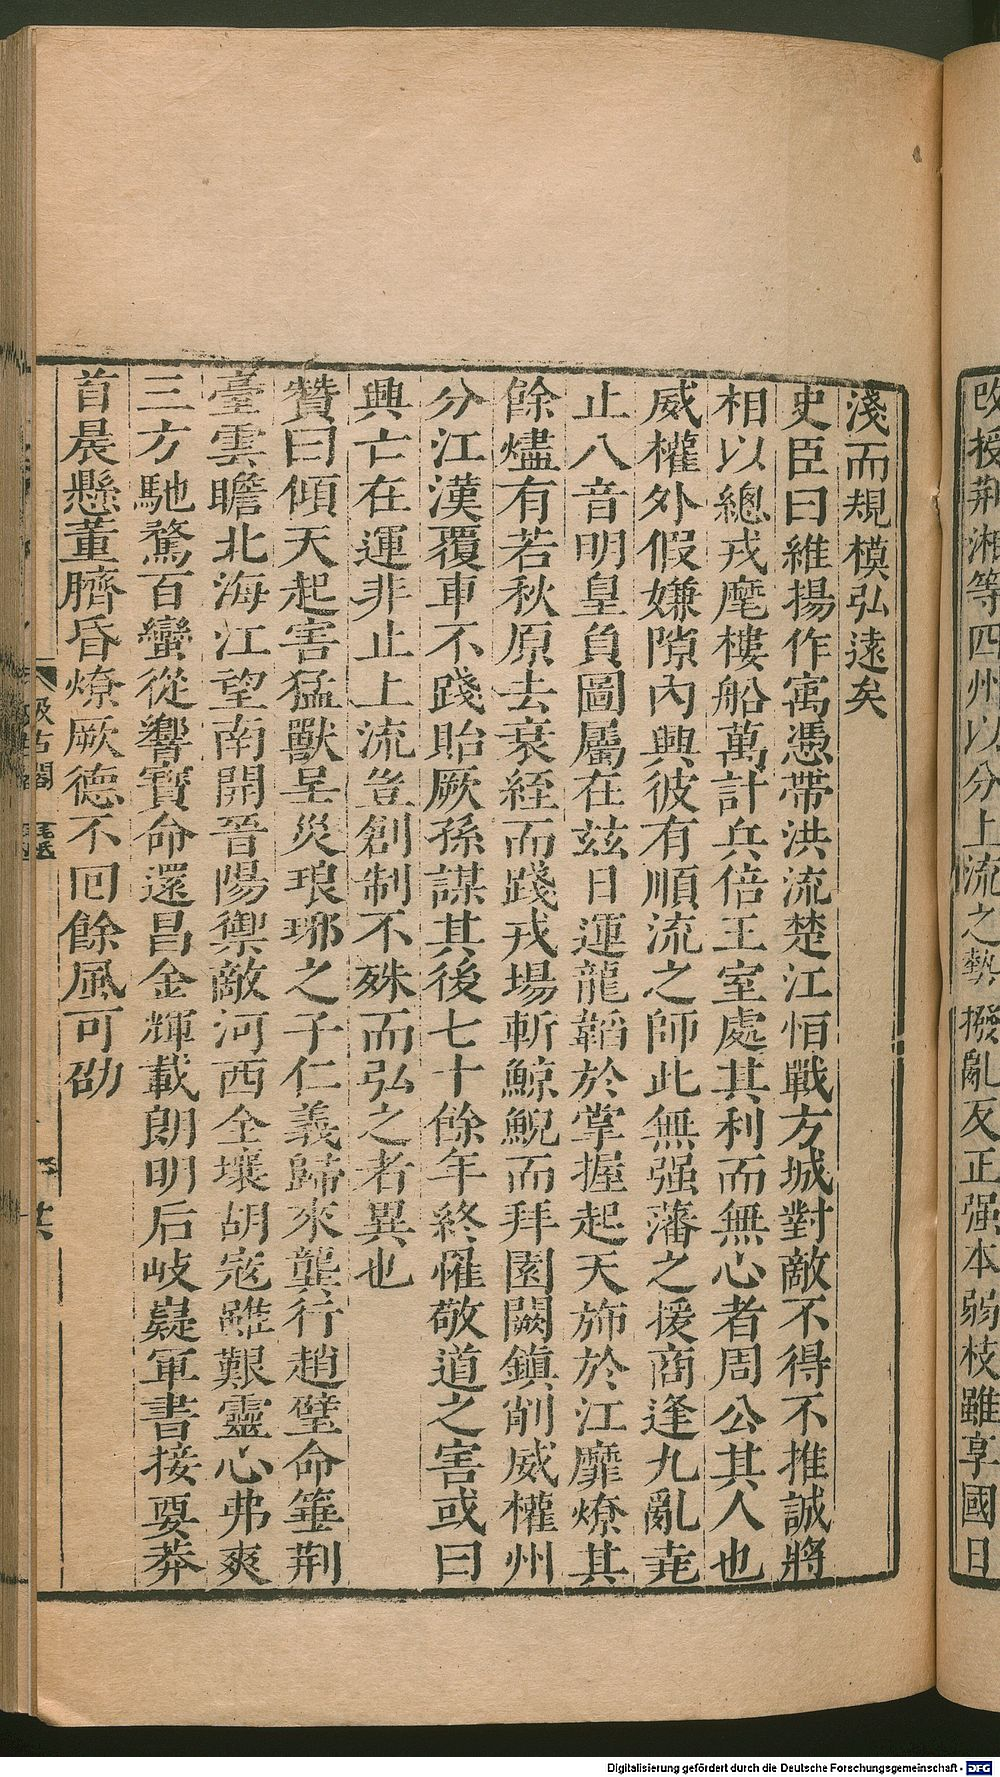 改授荆湘等四州以分上流之勢撥亂反正强本弱枝雖享國日
淺而規模弘遠矣
史臣曰維揚作寓憑帶洪流楚江恒戰方城對敵不得不推誠將
相以總戎麾樓船萬計兵倍王室處其利而無心者周公其人也
威權外假嫌隙內興彼有順流之師此無强藩之援商逢九亂堯
止八音明皇負圖屬在玆日運龍韜於掌握起天斾於江靡燎其
餘燼有若秋原去衰絰而踐戎場斬鯨鯢而拜園闕鎮削威權州
分江漢覆車不踐貽厥孫謀其後七十餘年終罹敬道之害或曰
興亡在運非止上流豈創制不殊而弘之者異也
贊曰傾天起害猛獸呈災琅琊之子仁義歸來龔行趙璧命箠荆
臺雲瞻北海江望南開晉陽禦敵河西全壤胡寇雖艱靈心弗爽
三方馳騖百蠻從響寶命還昌金輝載朗明后岐嶷軍書接要莽
首晨懸董臍昏燎厥德不回餘風可劭
汲古閣
Digitalisierung gefördert durch die Deutsche Forschungsgemeinschaft - DFG